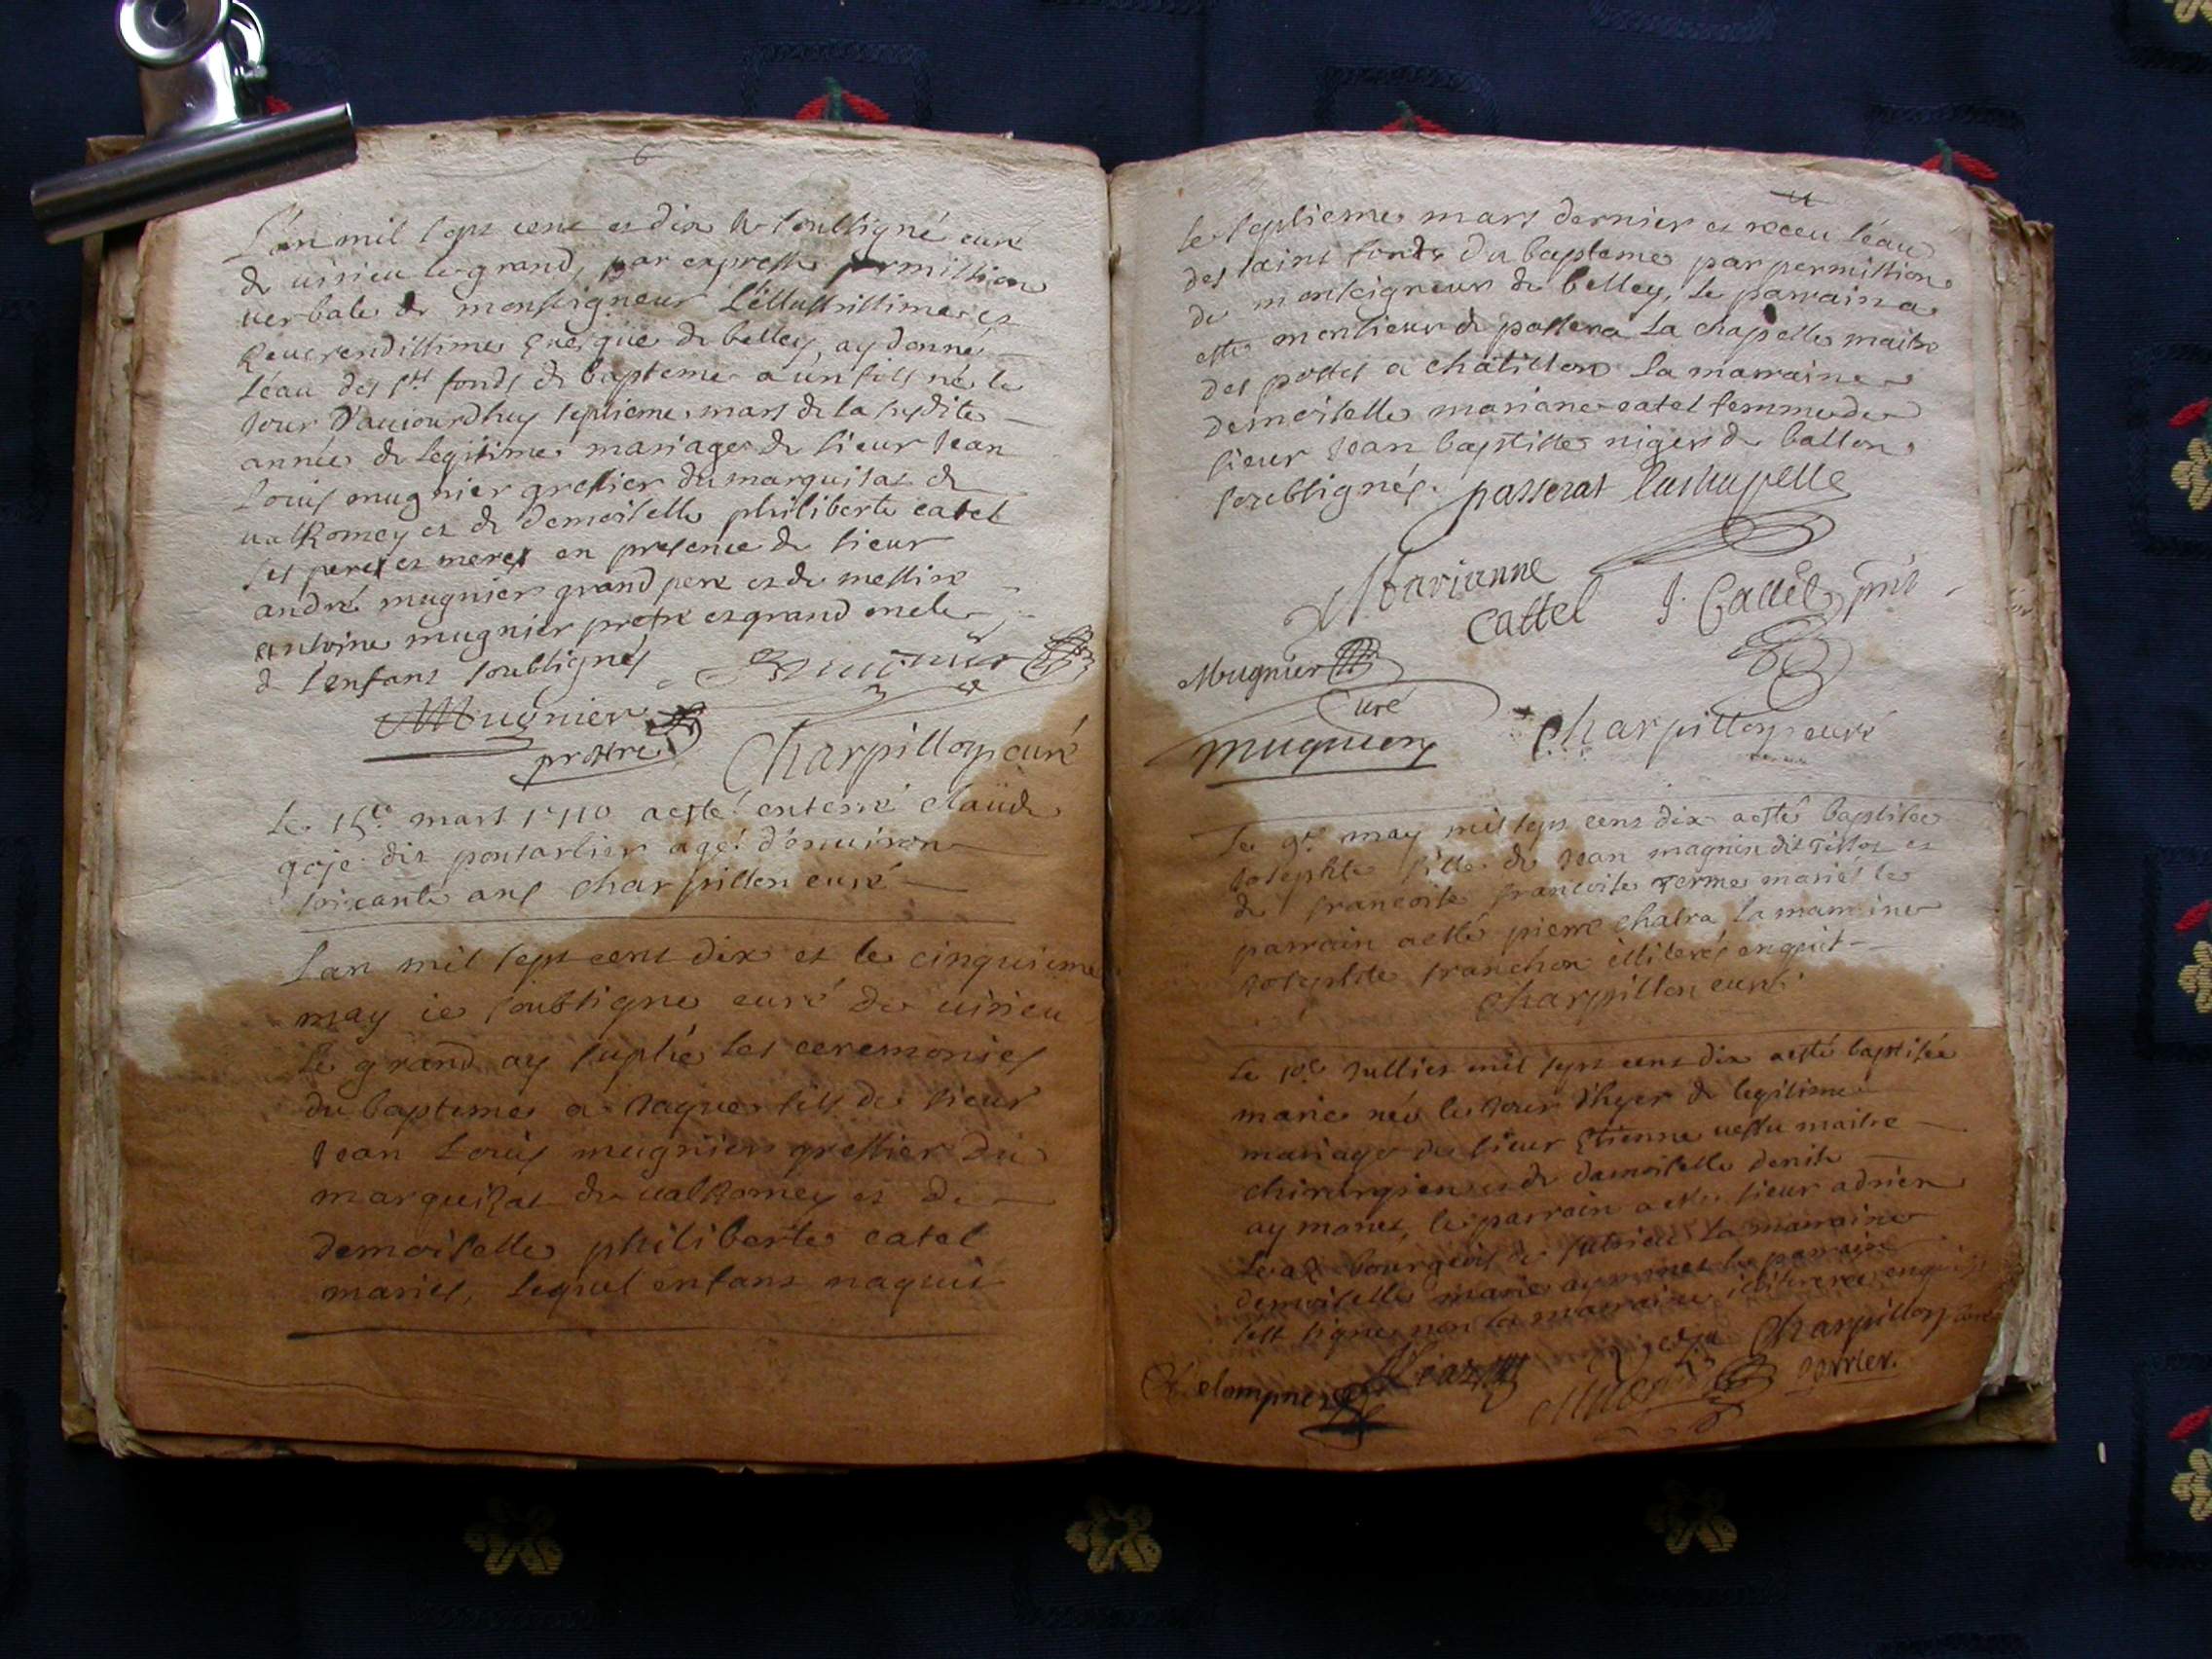 L'an mil sept cent et dix Je soubsigné curé
de virieu le grand, par expresse permission
verbale de monseigneur L'illustrissime et
Reverendissime Evesque de belley, ay donné
l'eau des sts fonds de bapteme a un fils né le
Jour d'aujourdhuy septieme mars de la susdite
année de legitime mariage de sieur Jean
Louis mugnier greffier du marquisat de
valRomey et de demoiselle philiberte catel
ses peres et meres en presence de sieur
andré mugnier grand pere et de messire
antoine mugnier pretre et grand oncle
de l'enfant soubsignés
Mugnier
prestre Charpillon curé
Le 15e mars 1710 a esté enterré claude
goje dit pontarlier agé d'environ
soixante ans charpillon curé
Lan mil sept cent dix et le cinquieme
may ie soubsigne curé de virieu
le grand ay suplié les ceremonies
du bapteme a Jaques fils de sieur
Jean Louis mugnier greffier du
marquisat de valRomey et de
demoiselle philiberte catel
maries, lequel enfant naquit
le septieme mars dernier et receu l'eau
des saint fonds du bapteme par permission
de monseigneur de belley, le parrain a
esté monsieur de passera la chapelle maitre
des postes a châtillon la marraine
demoiselle mariane catel femme de
sieur Jean baptiste niger de ballon
soubsignés. passerat lachapelle
Marianne
Cattel J. Cattel
Mugnier
Curé
mugnier Charpillon curé
Le 9e may mil sept cent dix a esté baptisée
Josephte fille de Jean magnin dit et
de francoise francoise mariés le
parrain a esté pierre chatra la marraine
Josephte franchon illiterés enquit
Charpillon curé
Le 10e Jullier mil sept cent dix a esté baptisée
marie née le Jour d'hyer de legitime
mariage de sieur Etienne vestu maitre
chirurgien et de damoiselle denise
aymonet, le parrain a esté sieur adrien
bourgeois de la marraine
demoiselle marie aymonet le parrain
sest signe non la marraine illiteree enquise
Charpillon curé